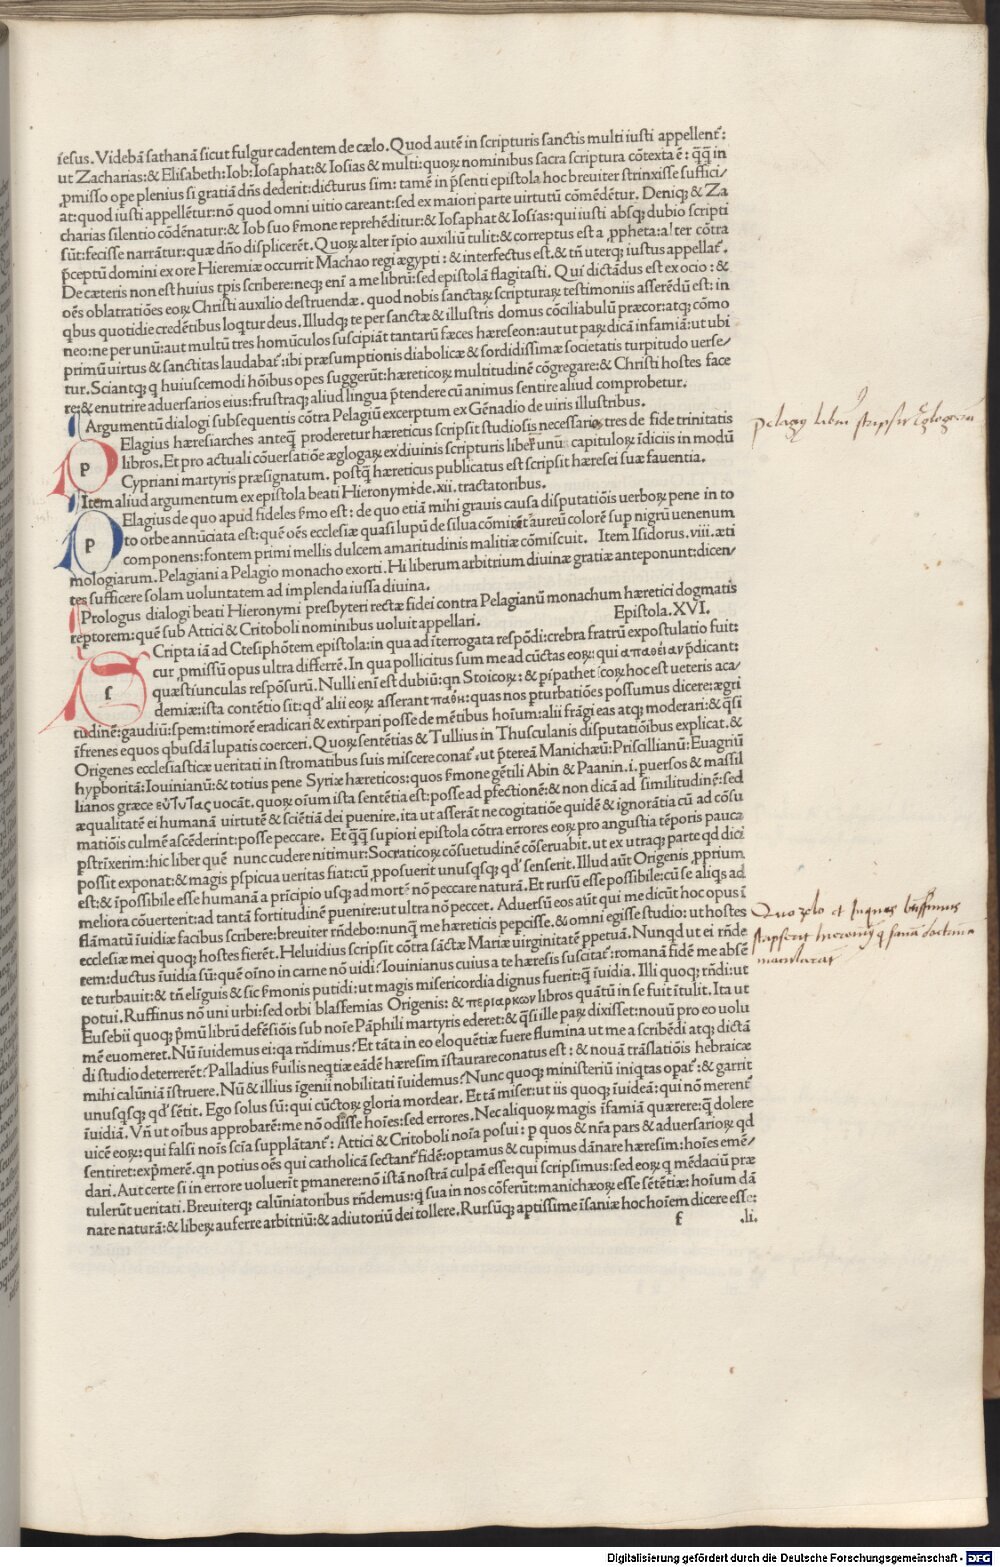 iesus. Videbā sathanā sicut fulgur cadentem de cælo. Quod autē in scripturis sanctis multi iusti appellent᷑:
ut Zacharias: & Elisabeth: Iob: Iosaphat: & Iosias & multi: quoꝝ nominibus sacra scriptura cōtexta ē: q̄q̄ in
ꝓmisso ope plenius si gratiā dn̄s dederit: dicturus sim: tamē in p̄senti epistola hoc breuiter strinxisse suffici/
at: quod iusti appellētur: nō quod omni uitio careant: sed ex maiori parte uirtutū cōmēdētur. Deniq; & Za
charias silentio cōdēnatur: & Iob suo s̄mone reprehēditur: & Iosaphat & Iosias: qui iusti absq; dubio scripti
sūt: fecisse narrātur: quæ dn̄o displicerēt. Quoꝝ alter īpio auxiliū tulit: & correptus est a ꝓpheta: alter cōtra
p̄ceptū domini ex ore Hieremiæ occurrit Machao regi ægypti: & interfectus est. & tn̄ uterq; iustus appellat᷑.
De cæteris non est huius tp̄is scribere: neq; enī a me librū: sed epistolā flagitasti. Qui dictādus est ex ocio: &
oēs oblatratiōes eoꝝ Christi auxilio destruendæ. quod nobis sanctaꝝ scripturaꝝ testimoniis asserēdū est: in
qbus quotidie credētibus loqtur deus. Illudq; te per sanctæ & illustris domus cōciliabulū præcor: atq; cōmo
neo: ne per unū: aut multū tres homūculos suscipiāt tantarū fæces hæreseon: aut ut paꝝ dicā infamiā: ut ubi
primū uirtus & sanctitas laudabat᷑: ibi præsumptionis diabolicæ & sordidissimæ societatis turpitudo uerse/
tur. Sciantq; q huiuscemodi hōibus opes suggerūt: hæreticoꝝ multitudinē cōgregare: & Christi hostes face
re: & enutrire aduersarios eius: frustraq; aliud lingua p̄tendere cū animus sentire aliud comprobetur.
Argumentū dialogi subsequentis cōtra Pelagiū excerptum ex Gēnadio de uiris illustribus.
p Elagius hæresiarches anteq̄ proderetur hæreticus scripsit studiosis necessarios tres de fide trinitatis
libros. Et pro actuali cōuersatiōe æglogaꝝ ex diuinis scripturis librū unū capituloꝝ īdiciis in modū
Cypriani martyris præsignatum. postq̄ hæreticus publicatus est scripsit hæresei suæ fauentia.
Item aliud argumentum ex epistola beati Hieronymi de .xii. tractatoribus.
p Elagius de quo apud fideles s̄mo est: de quo etiā mihi grauis causa disputatiōis uerboꝝ pene in to
to orbe annūciata est: quē oēs ecclesiæ quasi lupū de silua cōmināt aureū colorē sup nigrū uenenum
componens: fontem primi mellis dulcem amaritudinis malitiæ cōmiscuit. Item Isidorus .viii. æti
mologiarum. Pelagiani a Pelagio monacho exorti. Hi liberum arbitrium diuinæ gratiæ anteponunt: dicen/
tes sufficere solam uoluntatem ad implenda iussa diuina.
Prologus dialogi beati Hieronymi presbyteri rectæ fidei contra Pelagianū monachum hæretici dogmatis
reptorem: quē sub Attici & Critoboli nominibus uoluit appellari. Epistola. XVI.
f Cripta iā ad Ctesiphōtem epistola: in qua ad īterrogata respōdi: crebra fratrū expostulatio fuit:
cur ꝓmissū opus ultra differrē. In qua pollicitus sum me ad cūctas eoꝝ: qui απαθείαν p̄dicant:
quæstiunculas respōsurū. Nulli enī est dubiū: qn Stoicoꝝ: & pipathet icoꝝ hoc est ueteris aca/
demiæ: ista contētio sit: qd᷑ alii eoꝝ asserant παθη: quas nos pturbatiōes possumus dicere: ægri
tudinē: gaudiū: spem: timorē eradicari & extirpari posse de mētibus hoīum: alii frāgi eas atq; moderari: & q̄si
īfrenes equos qbusdā lupatis coerceri. Quoꝝ sentētias & Tullius in Thusculanis disputatiōibus explicat. &
Origenes ecclesiasticæ ueritati in stromatibus suis miscere conat᷑. ut p̄tereā Manichæū: Priscillianū: Euagriū
hypboritā: Iouinianū: & totius pene Syriæ hæreticos: quos s̄mone gētili Abin & Paanin .i. puersos & massil
lianos græce uocāt. quoꝝ oīum ista sentētia est: posse ad pfectionē: & non dicā ad similitudinē: sed
æqualitatē ei humanā uirtutē & sciētiā dei puenire. ita ut asserāt ne cogitatiōe quidē & ignorātia cū ad cōsu
matiōis culmē ascēderint: posse peccare. Et q̄q̄ supiori epistola cōtra errores eoꝝ pro angustia tēporis pauca
pstrīxerim: hic liber quē nunc cudere nitimur: Socraticoꝝ cōsuetudinē cōseruabit. ut ex utraq; parte qd dici
possit exponat: & magis pspicua ueritas fiat: cū ꝓposuerit unusqsq; qd᷑ senserit. Illud aūt Origenis ꝓprium
est: & īpossibile esse humanā a prīcipio usq; ad mortē nō peccare naturā. Et rursū esse possibile: cū se aliqs ad
meliora cōuerterit: ad tantā fortitudinē puenire: ut ultra nō peccet. Aduersū eos aūt qui me dicūt hoc opus ī
flāmatū īuidiæ facibus scribere: breuiter rn̄debo: nunq̄ me hæreticis pepcisse. & omni egisse studio: ut hostes
ecclesiæ mei quoq; hostes fierēt. Heluidius scripsit cōtra sāctæ Mariæ uirginitatē ppetuā. Nunqd ut ei rn̄de
rem: ductus īuidia sū: quē oīno in carne nō uidi? Iouinianus cuius a te hæresis suscitat᷑: romanā fidē me absē
te turbauit: & tn̄ elīguis & sic s̄monis putidi: ut magis misericordia dignus fuerit: q̄ īuidia. Illi quoq; rn̄di: ut
potui. Ruffinus nō uni urbi: sed orbi blasfemias Origenis: & περιαρκων libros quātū in se fuit ītulit. Ita ut
Eusebii quoq; p̄mū librū defēsiōis sub noīe Pāphili martyris ederet: & q̄si ille paꝝ dixisset: nouū pro eo uolu
mē euomeret. Nū īuidemus ei: qa rn̄dimus? Et tāta in eo eloquētiæ fuere flumina ut me a scribēdi atq; dictā
di studio deterrerēt? Palladius s̄uilis neqtiæ eādē hæresim īstaurare conatus est: & nouā trāslatiōis hebraicæ
mihi calūniā īstruere. Nū & illius īgenii nobilitati īuidemus? Nunc quoq; ministeriū iniqtas opat᷑: & garrit
unusqsq; qd᷑ sētit. Ego solus sū: qui cūctoꝝ gloria mordear. Et tā miser: ut iis quoq; īuideā: qui nō merent᷑
īuidiā. Vn̄ ut oībus approbarē: me nō odisse hoīes: sed errores. Nec aliquoꝝ magis īfamiā quærere: q̄ dolere
uicē eoꝝ: qui falsi noīs scīa supplātant᷑: Attici & Critoboli noīa posui: ꝑ quos & nr̄a pars & aduersarioꝝ qd
sentiret: exp̄merē. qn potius oēs qui catholicā sectant᷑ fidē: optamus & cupimus dānare hæresim: hoīes emē/
dari. Aut certe si in errore uoluerīt pmanere: nō istā nostrā culpā esse: qui scripsimus: sed eoꝝ q mēdaciū præ
tulerūt ueritati. Breuiterq; calūniatoribus rn̄demus: q sua in nos cōferūt: manichæoꝝ esse sētētiæ: hoīum dā
nare naturā: & libeꝝ auferre arbitriū: & adiutoriū dei tollere. Rursūq; aptissime īsaniæ hoc hoīem dicere esse:
f .li.
Pelagij libri scripsit
Quo zelo et
scripserit hieronym9 q doctrina
Digitalisierung gefördert durch die Deutsche Forschungsgemeinschaft - DFG